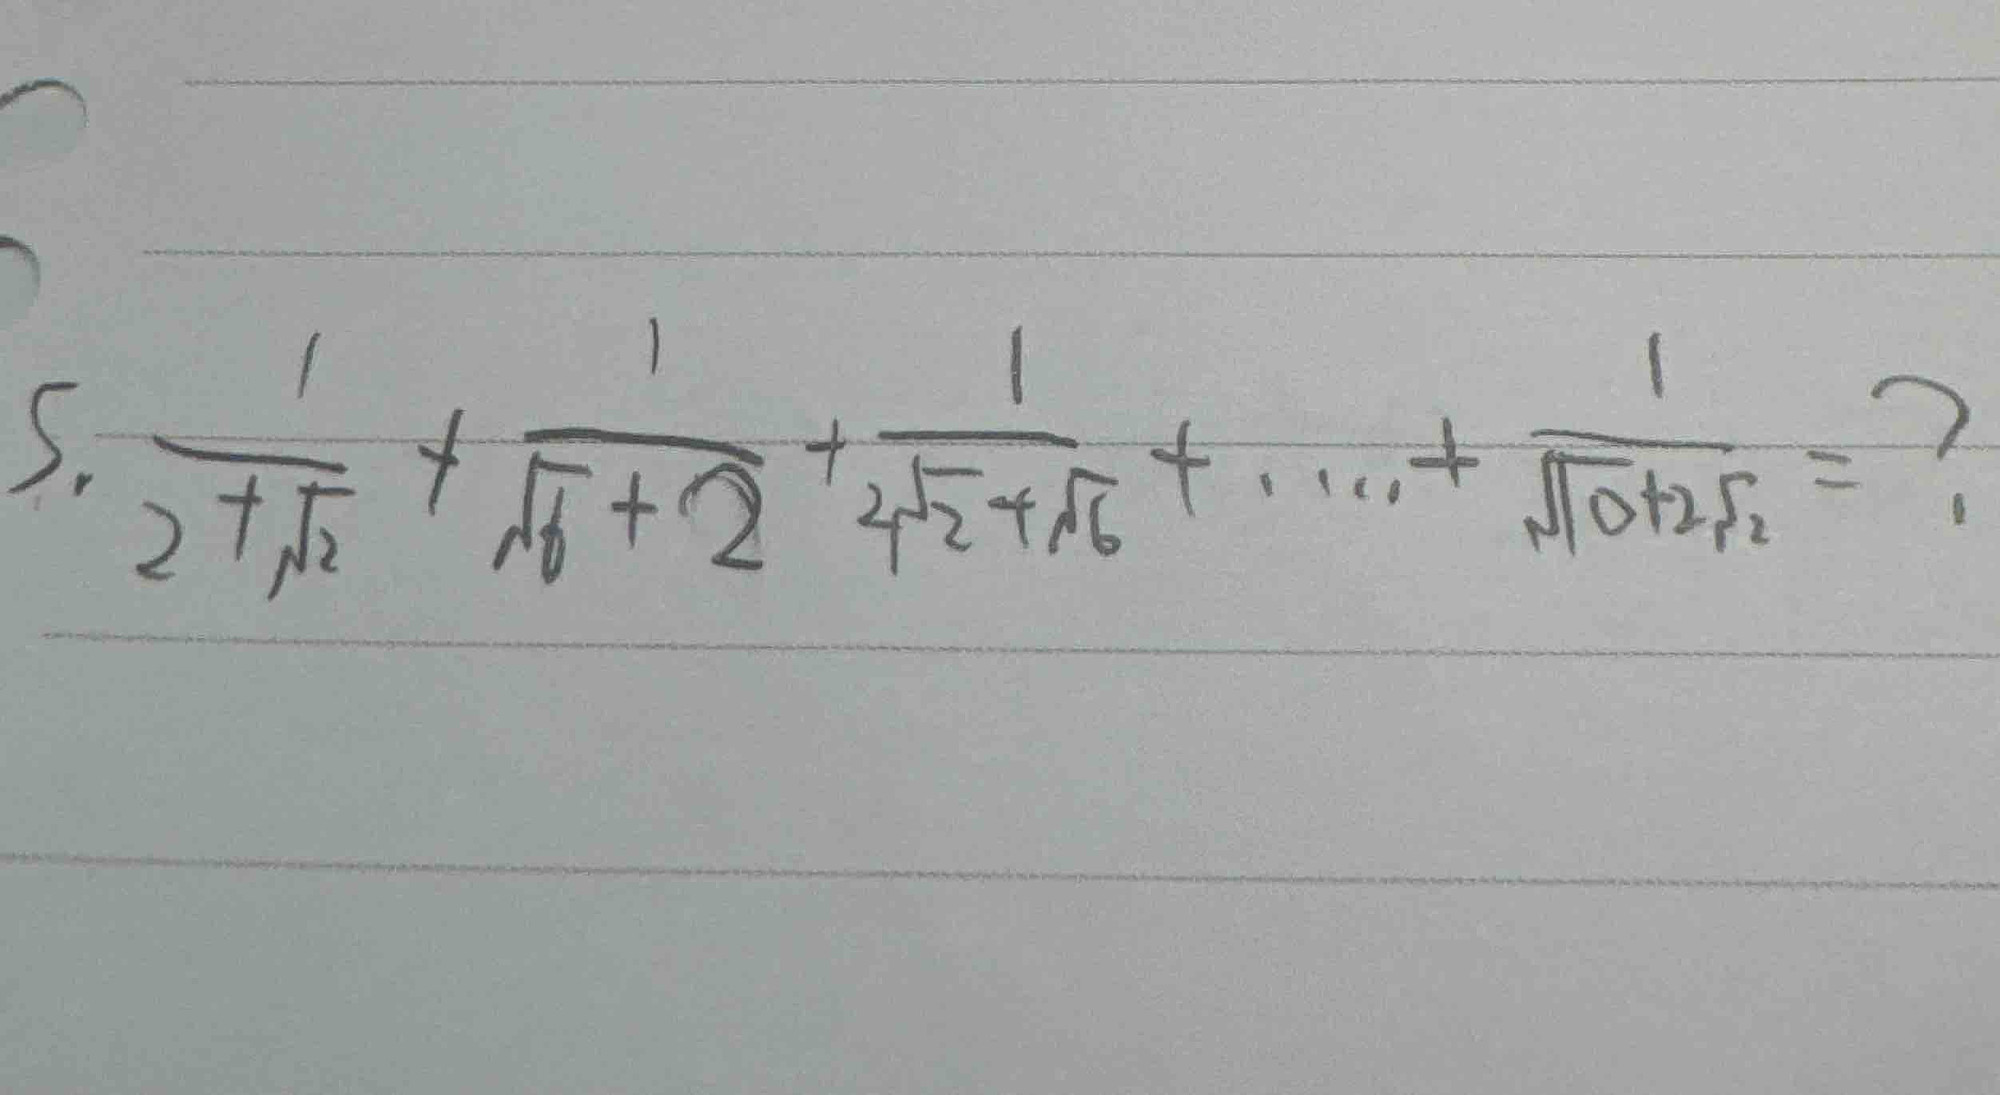 5. 1/(2+√2) + 1/(√6+2) + 1/(2√2+√6) + ..... + 1/(√10+2√2) = ?